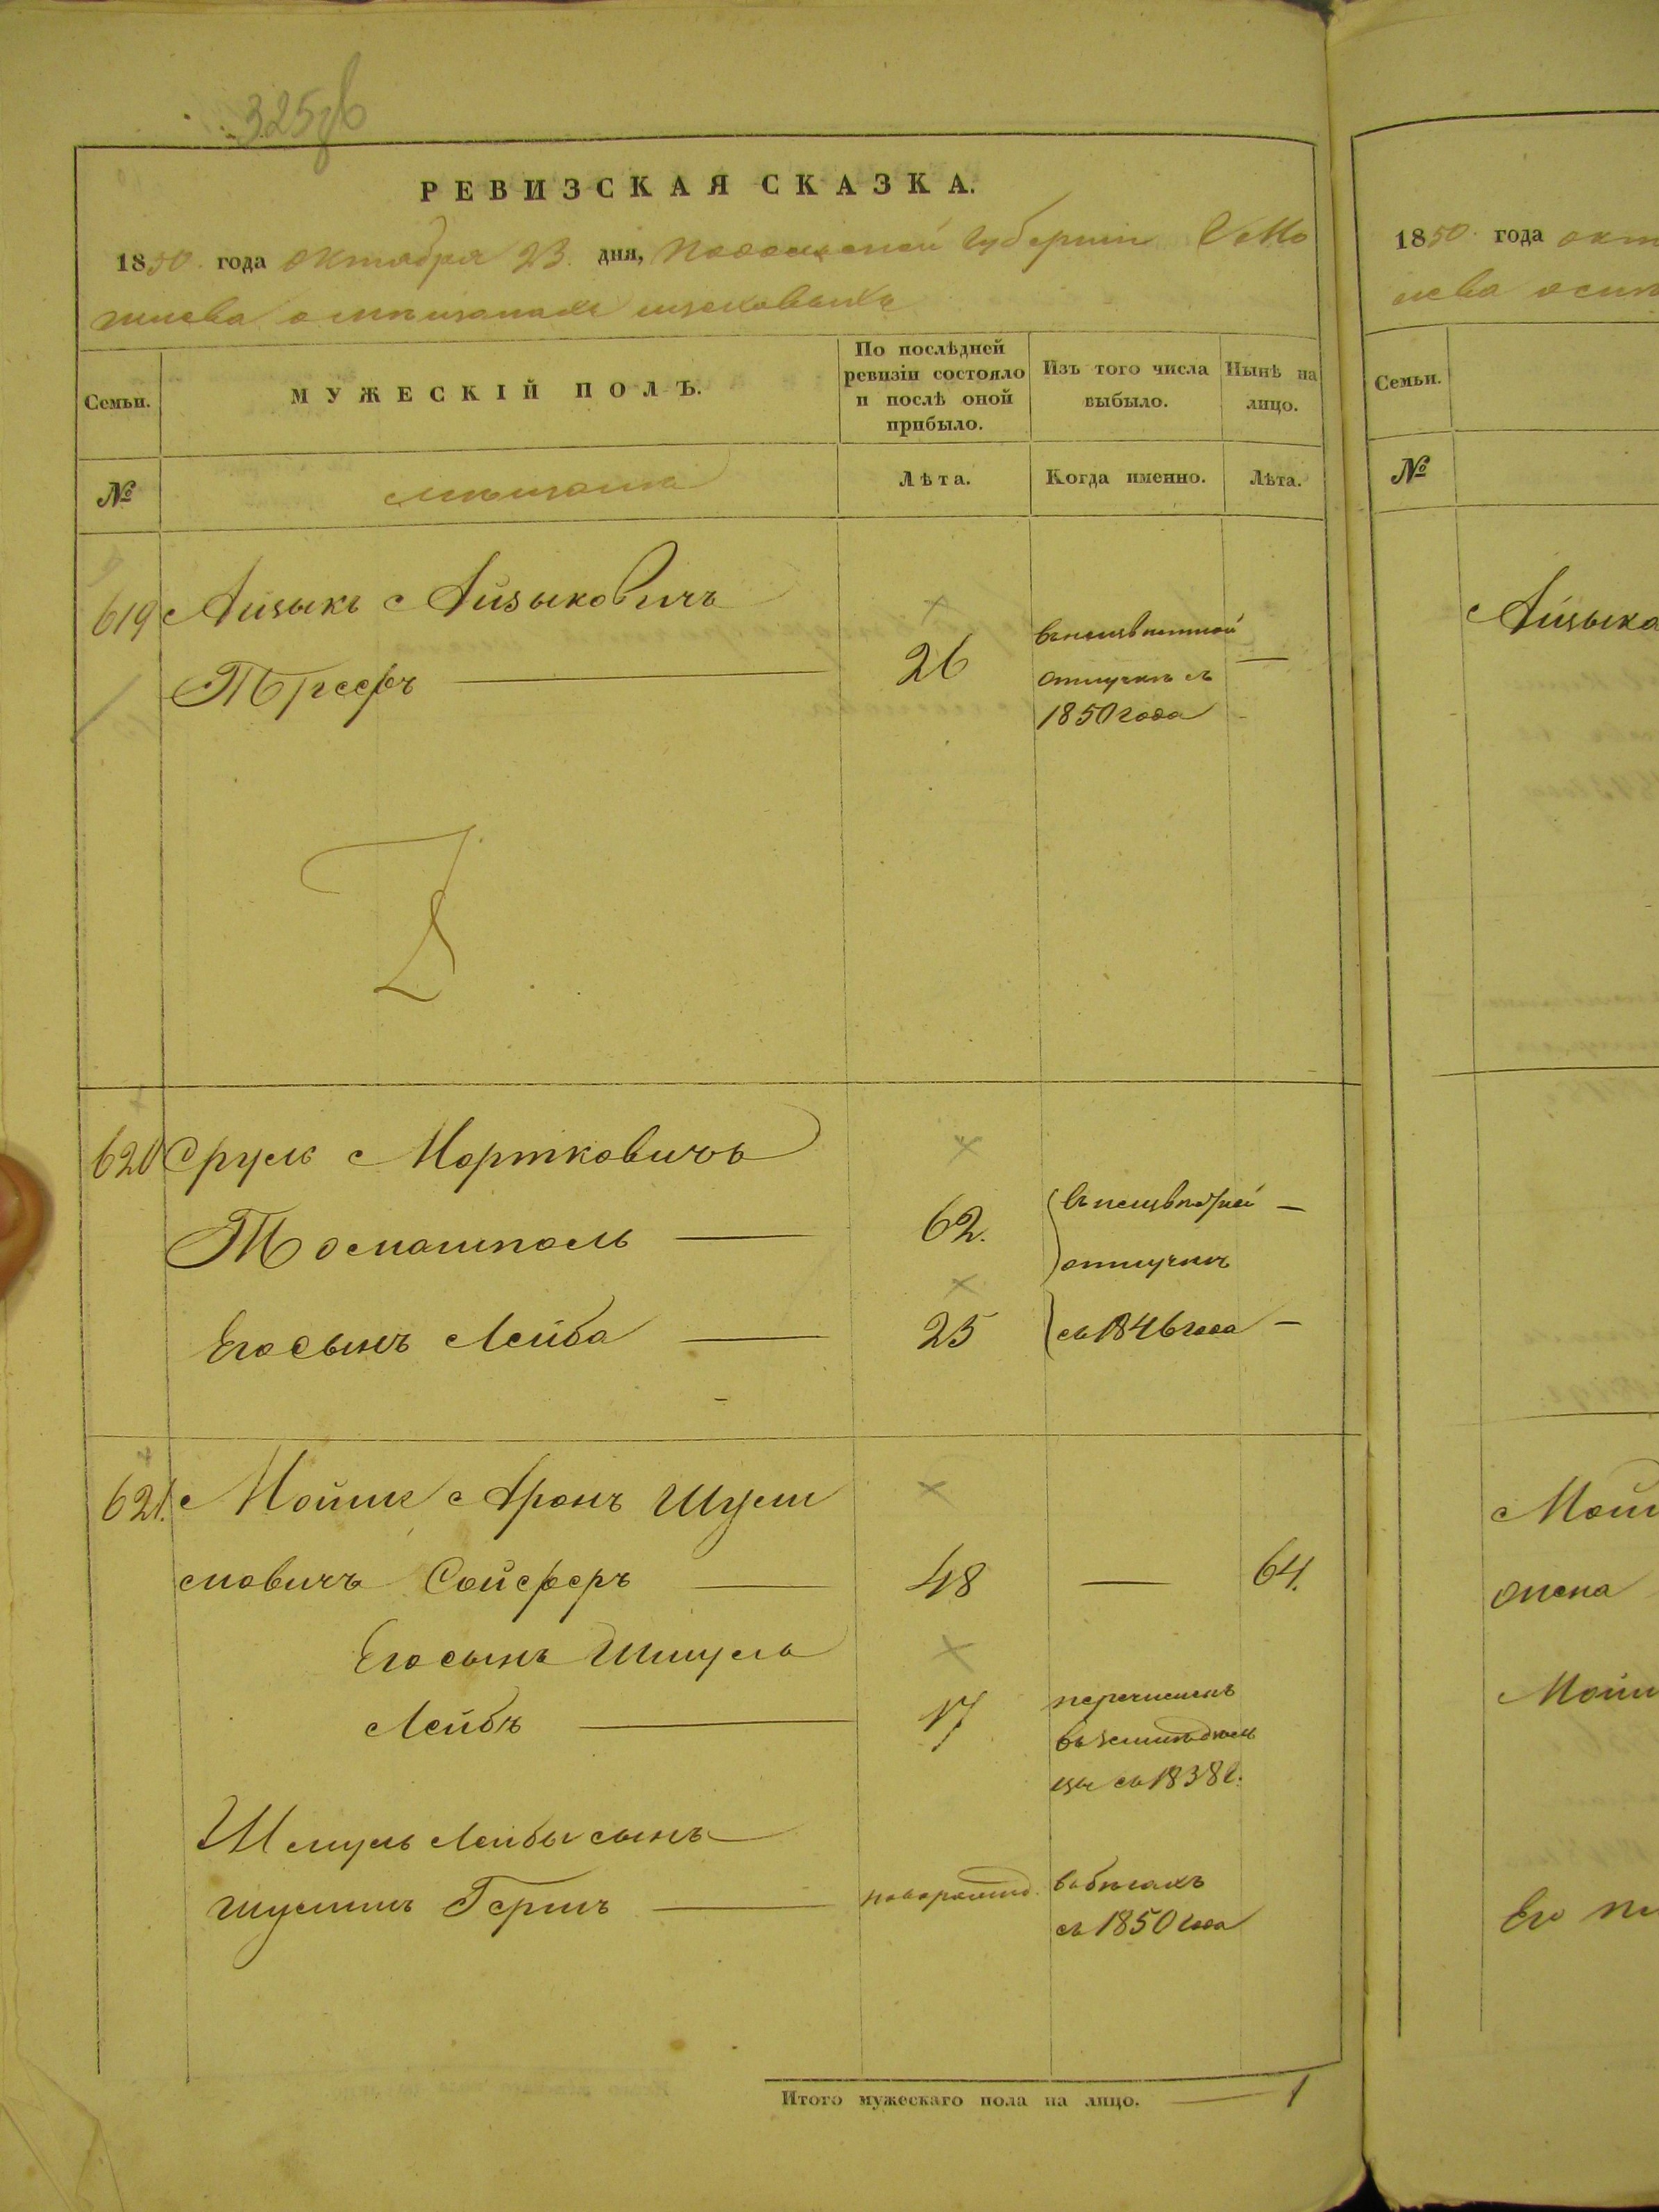 325об
РЕВИЗСКАЯ СКАЗКА.
1850. года октября 23. дня, Подольской Губернии
о мѣщанахъ
Семьи.
МУЖЕСКІЙ ПОЛЪ.
По послѣдней ревизіи состояло и послѣ оной прибыло.
Изъ того числа выбыло.
Нынѣ на лицо.
№
мѣщане
Лѣта.
Когда именно.
Лѣта.
619 Айзыкъ Айзыковичъ
Трееръ — 26 —
отлучкѣ съ
1850 года
620 Сруль Мортковичъ
Томашполь — 62. въ неизвѣстной —
отлучкѣ
Его сынъ Лейба — 25 съ 1846 года —
621. Мойше Аронъ Шули
мовичъ Сойферъ — 48 — 64.
Его сынъ Шмуель
Лейбъ — 17 перечисленъ
въ земледѣль
цы съ 1838 г.
Шмуль Лейбы сынъ
Гершъ — новорожд. въ бѣгахъ
съ 1850 года
Итого мужескаго пола на лицо. — 1
1850. года окт
Семьи.
№
Айзыка
Мой
жена
Мойш
Его